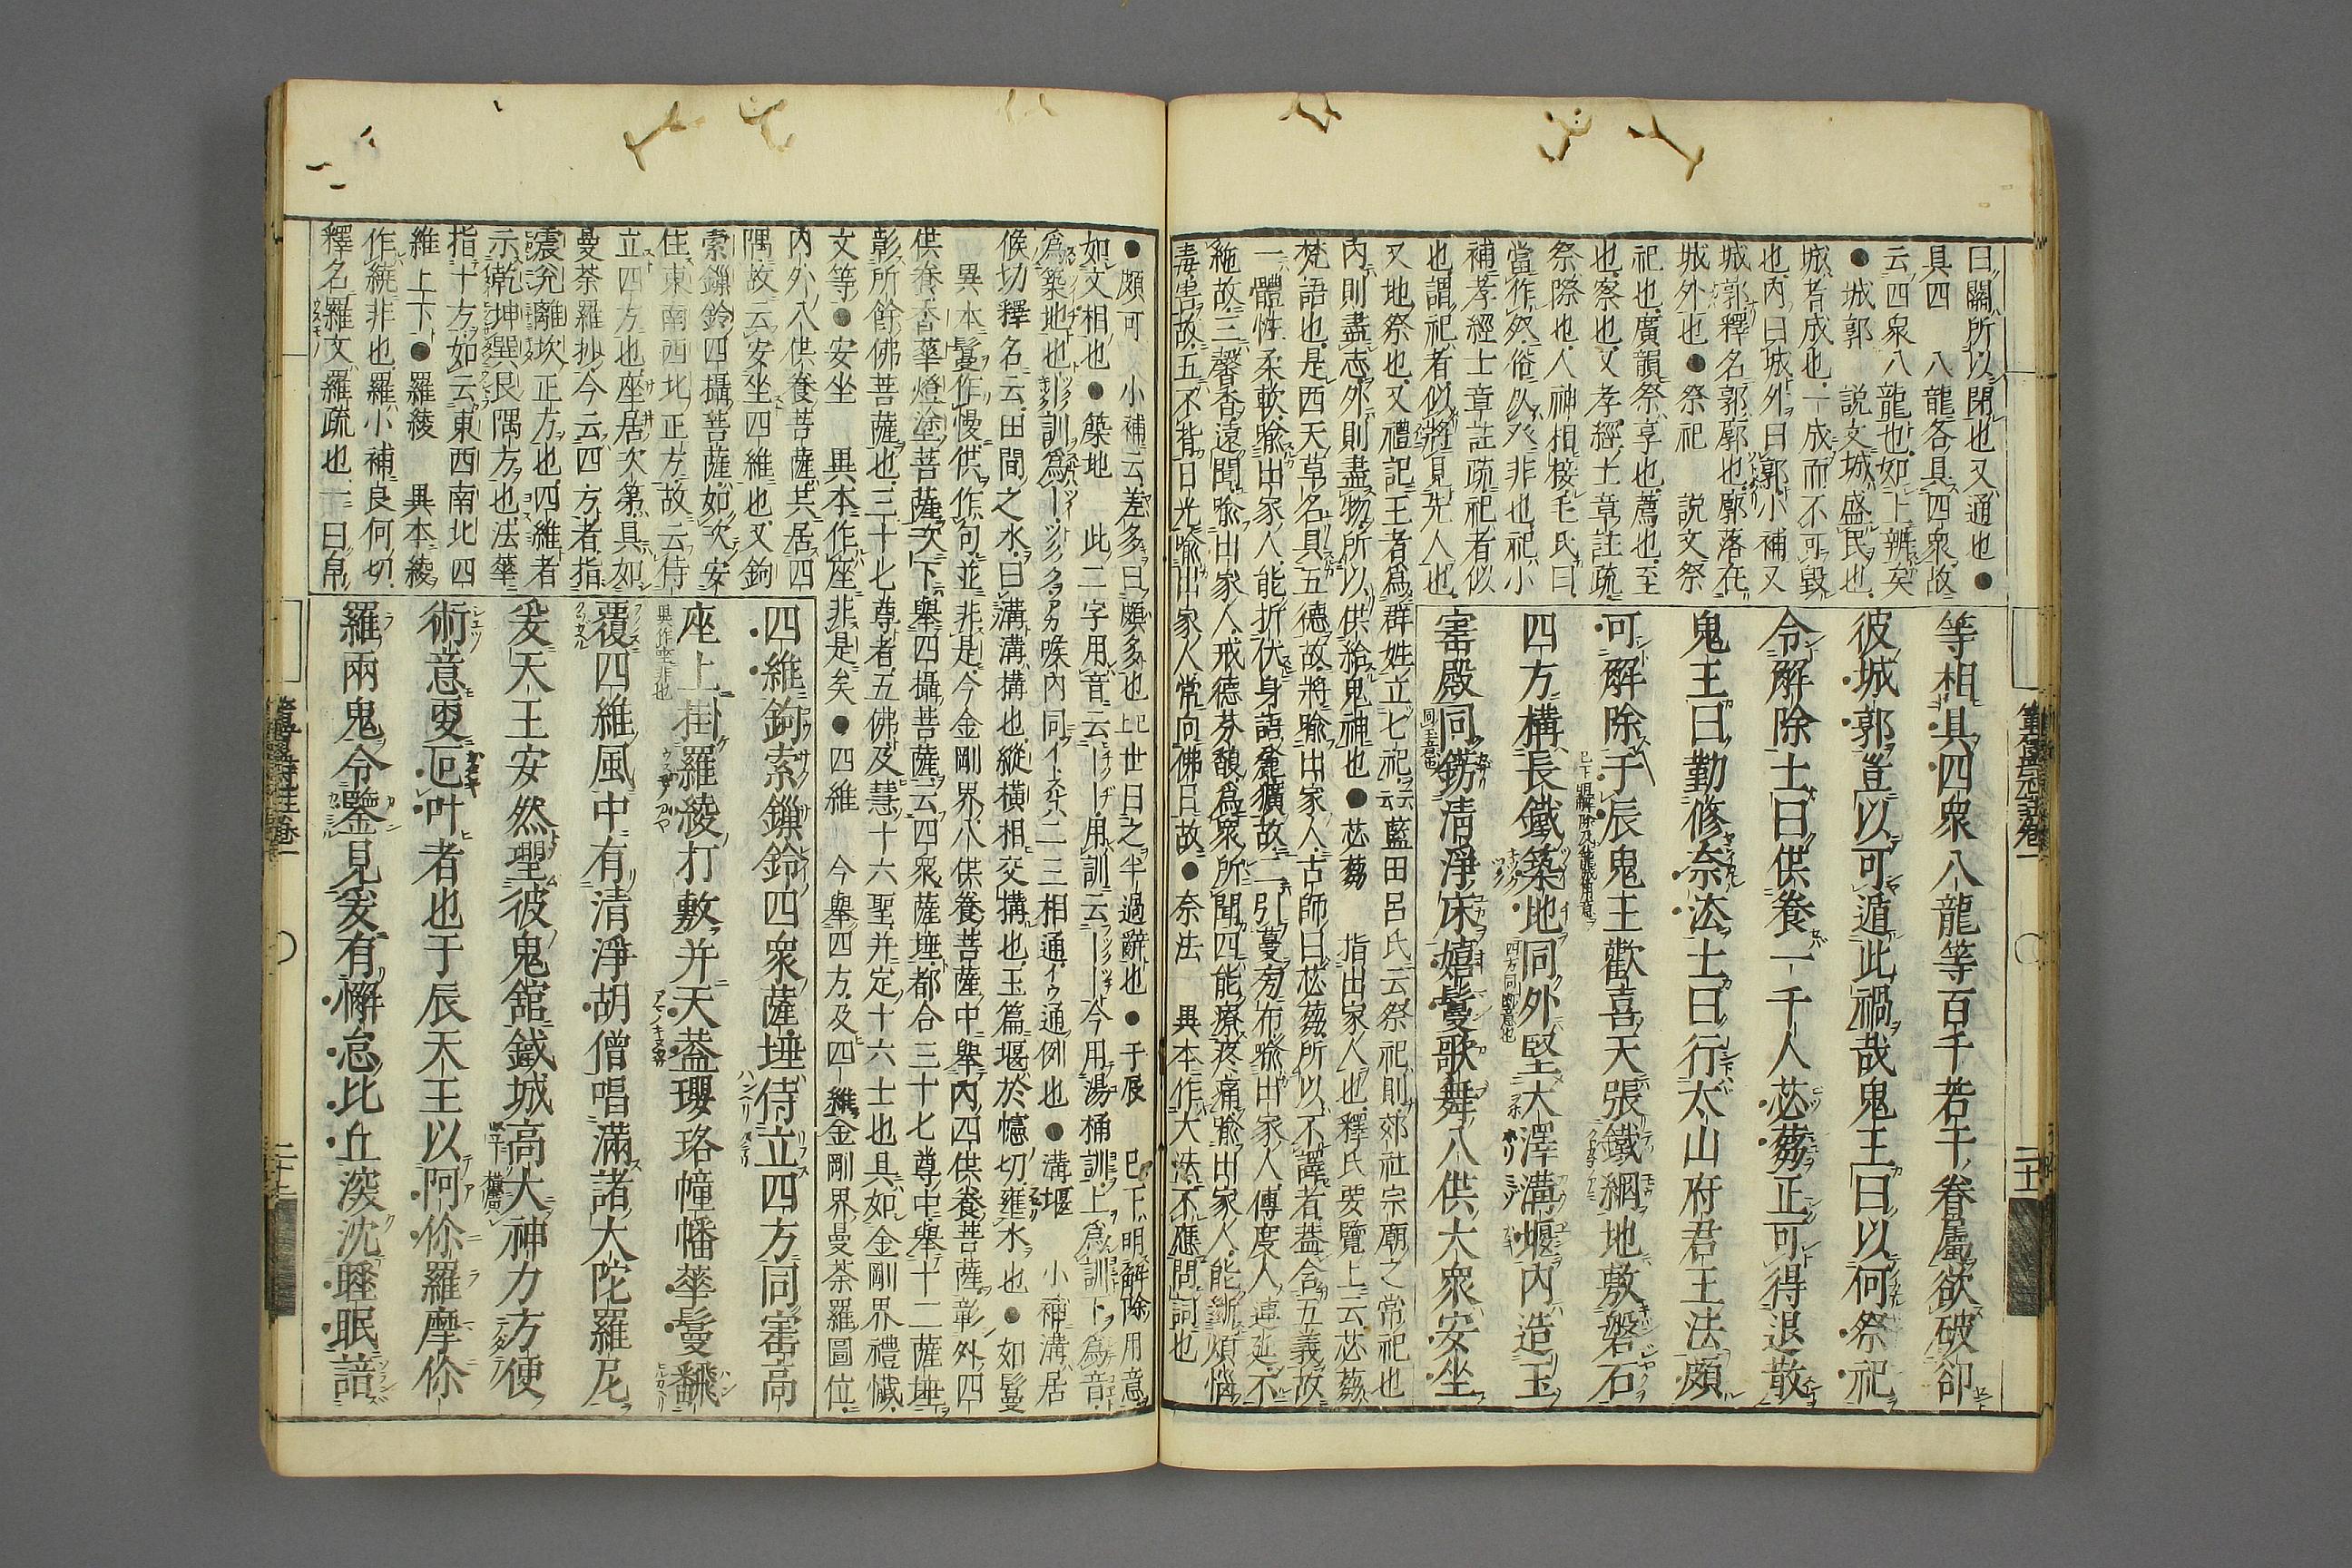 曰關所以閉也又通也●
具四　八龍各具四衆故
云四泉八龍也如上辨矣
●城郭　說文城盛民也
城者成也一成而不可毀
也內曰城外曰郭小補又
城郭釋名郭廓也廓落在
城外也●祭祀　說文祭
祀也廣韻祭享也薦也至
也察也又孝經士章註疏
祭際也人神相接毛氏曰
當作祭俗从癶非也祀小
補孝經士章註疏祀者似
也謂祀者似將見先人也
又地祭也又禮記王者爲群姓立七祀云云藍田呂氏云祭祀則郊社宗廟之常祀也
內則盡志外則盡物所以供給鬼神也●苾蒭　指出家人也釋氏要覽上云苾蒭
梵語也是西天草名具五德故將喩出家人古師曰苾蒭所以不譯者蓋含五義故
一體性柔軟喩出家人能折伏身語麁獷故二引蔓旁布喩出家人傳度人連延不
絶故三馨香遠聞喩出家人戒德芬馥爲衆所聞四能療疼痛喩出家人能斷煩惱
毒害故五不背日光喩出家人常向佛日故●奈法　異本作大法不應問詞也
等相具四衆八龍等百千若干眷屬欲破卻
彼城郭豈以可遁此禍哉鬼王曰以何祭祀
令解除士曰供養一千人苾蒭正可得退散
鬼王曰勤修奈法士曰行太山府君王法頗
可解除于辰鬼王歡喜天張鐵網地敷磐石
四方構長鐵築地同外堅大澤溝堰內造玉
寚殿同鎊清淨床嬉鬘歌舞八供大衆安坐
●頗可　小補云差多曰頗多也●于辰　已下明解除用意
如文相也●築地　此二字用音云用訓云今用湯桶訓上爲訓下爲音
爲築地也訓爲ツククヲアカ喉內同イト二三相通イウ通例也●溝堰　小補溝居
候切釋名云田間之水曰溝溝搆也縱橫相交搆也玉篇堰於幰切壅水也●如鬘
異本鬘作慢供作句並非是今金剛界八供養菩薩中舉內四供養菩薩彰外四
供養香華燈塗菩薩次下舉四攝菩薩云四衆薩埵都合三十七尊中舉十二薩埵
彰所餘佛菩薩也三十七尊者五佛及慧十六聖并定十六士也具如金剛界禮懺
文等●安坐　異本作座非是矣●四維　今舉四方及四維金剛界曼荼羅圖位
內外八供養菩薩其居四
隅故云安坐四維也又鉤
索鏁鈴四攝菩薩如次安
住東南西北正方故云侍
立四方也座居次第具如
曼荼羅抄今云四方者指
震兌離坎正方也四維者
示乾坤巽艮隅方也法華
指十方如云東西南北四
維上下●羅綾　異本綾
作繞非也羅小補良何切
釋名羅文羅疏也一曰帛
四維鉤索鏁鈴四衆薩埵侍立四方同寚高
座上掛羅綾打敷并天蓋瓔珞幢幡華鬘飜
覆四維風中有清淨胡僧唱滿諸大陀羅尼
爰天王安然聖彼鬼舘鐵城高大神力方便
術意更叵叶者也于辰天王以阿你羅摩你
羅兩鬼令鑒見爰有懈怠比丘深沈睡眠諳